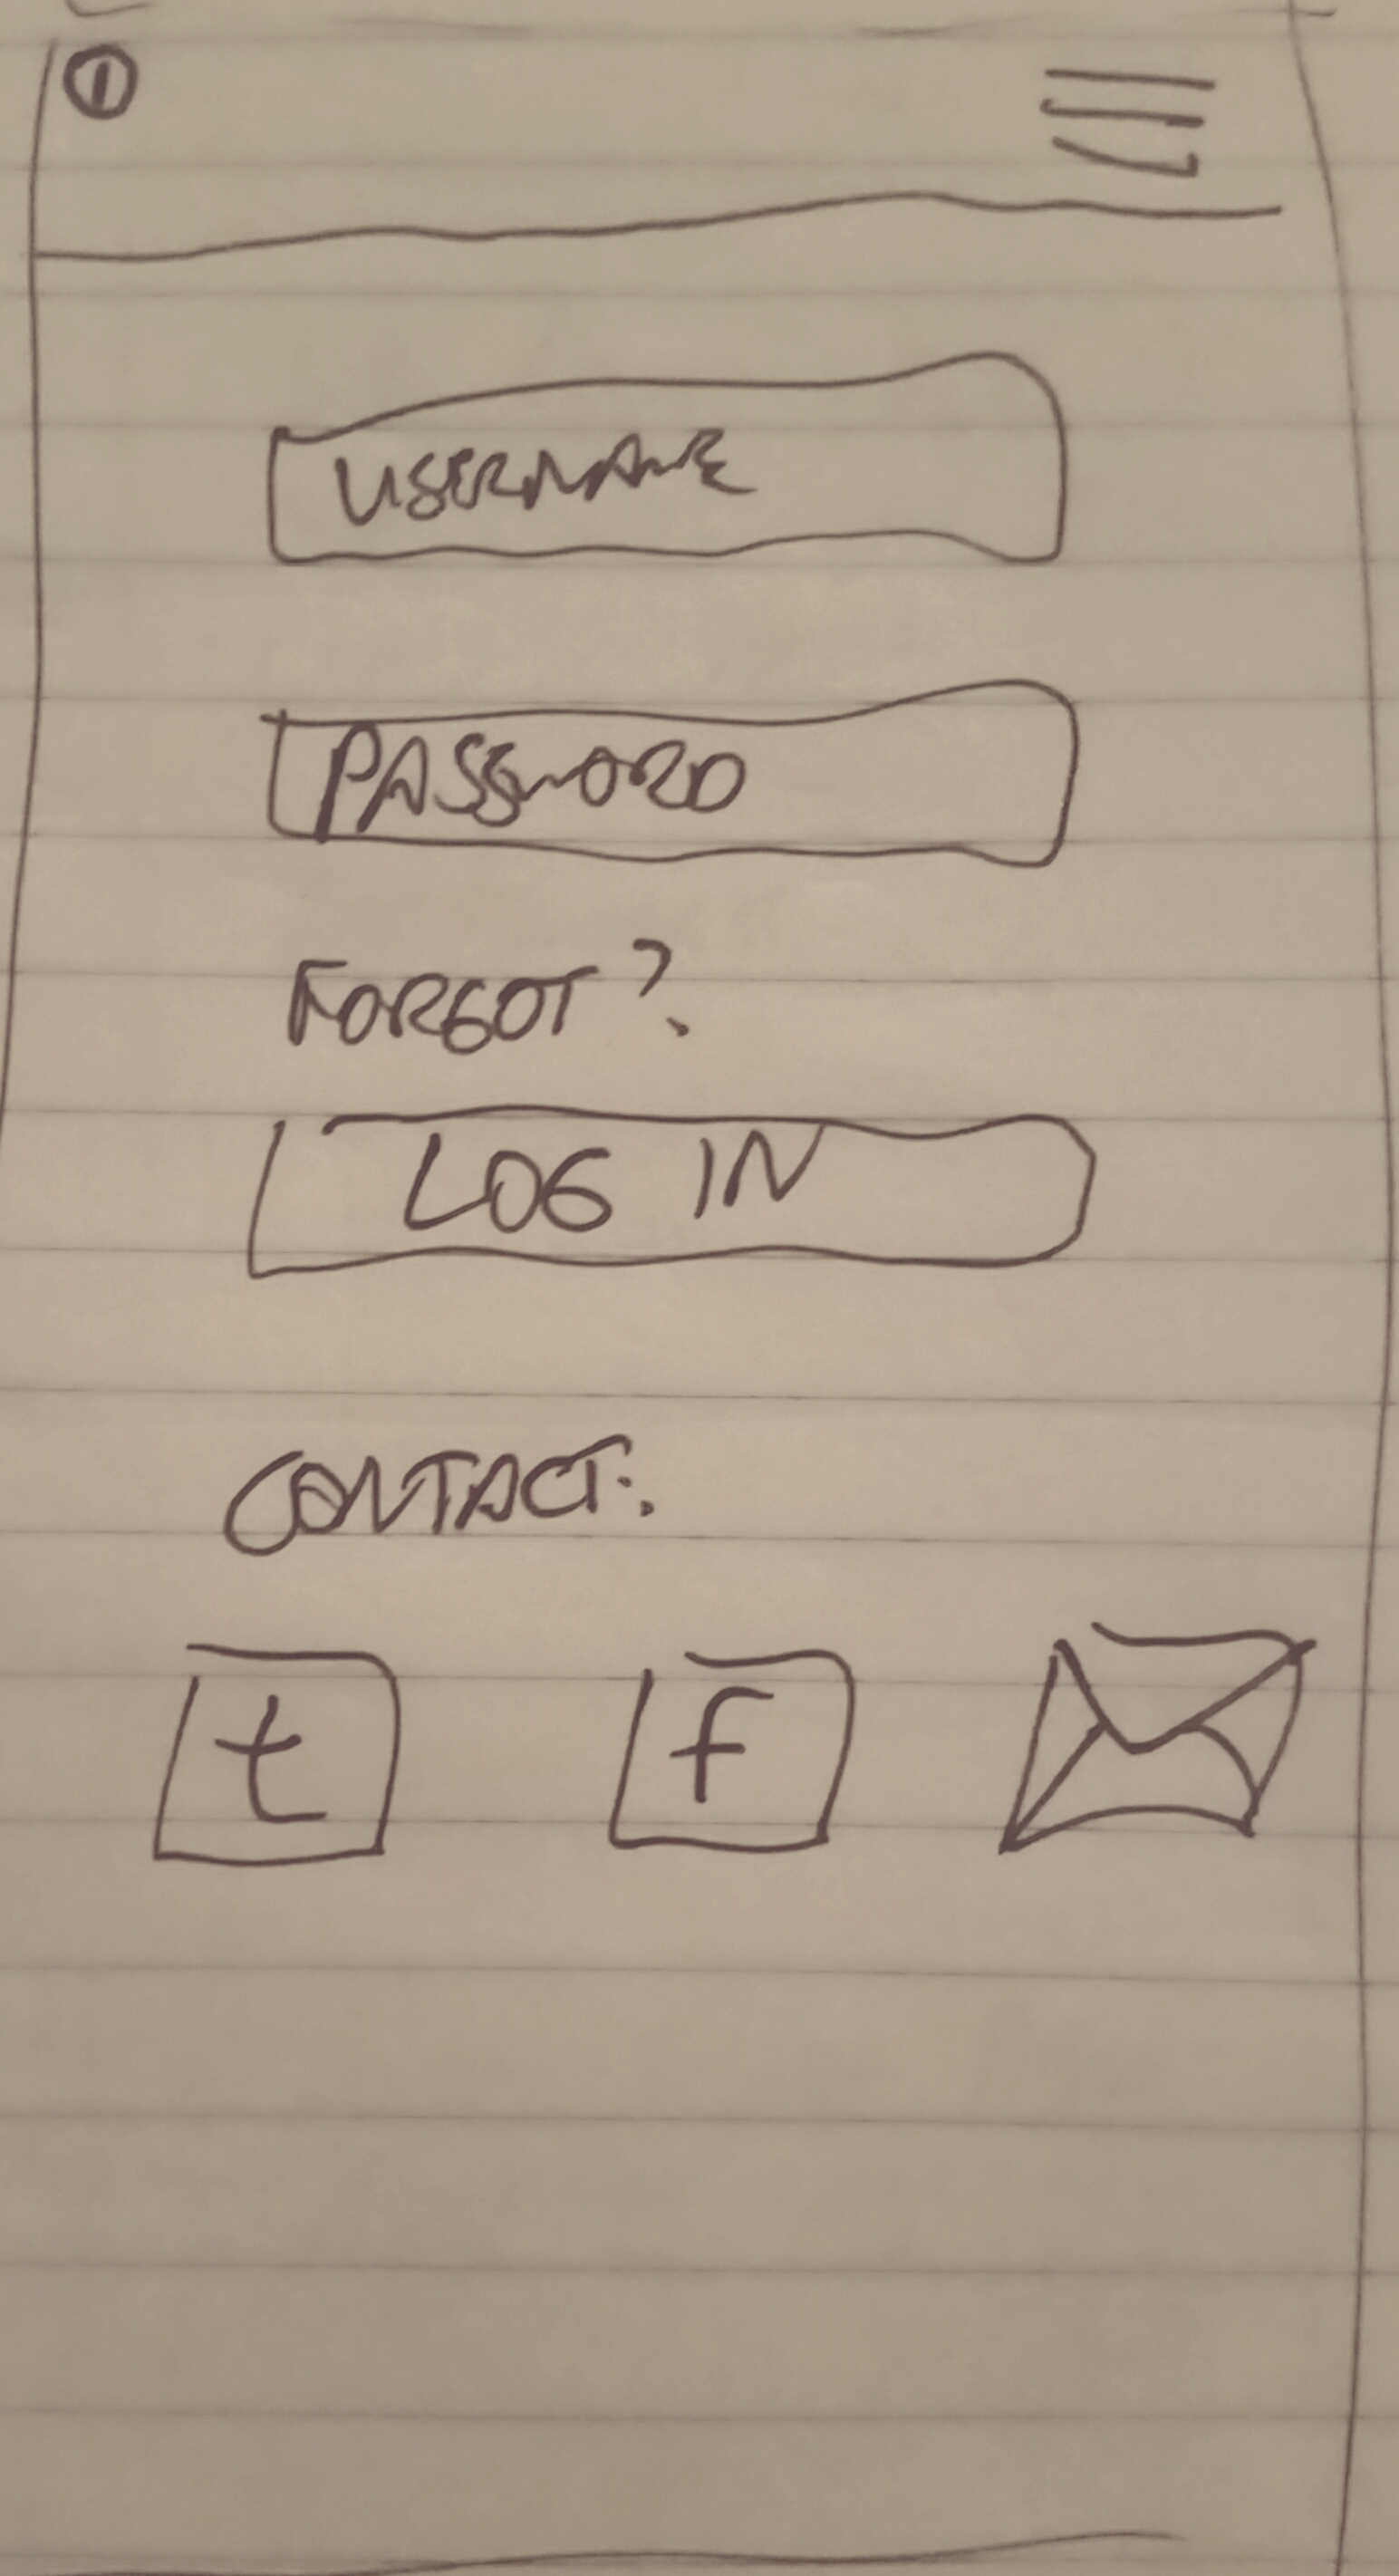 1
USERNAME
PASSWORD
FORGOT?
LOG IN
CONTACT:
t f